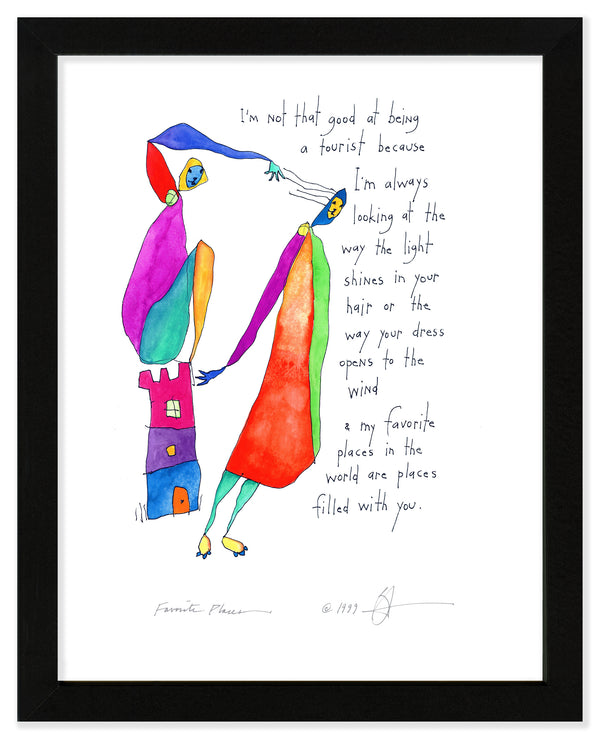 I'm not that good at being
a tourist because
I'm always
looking at the
way the light
shines in your
hair or the
way your dress
opens to the
wind
& my favorite
places in the
world are places
filled with you.
Favorite Places
© 1999